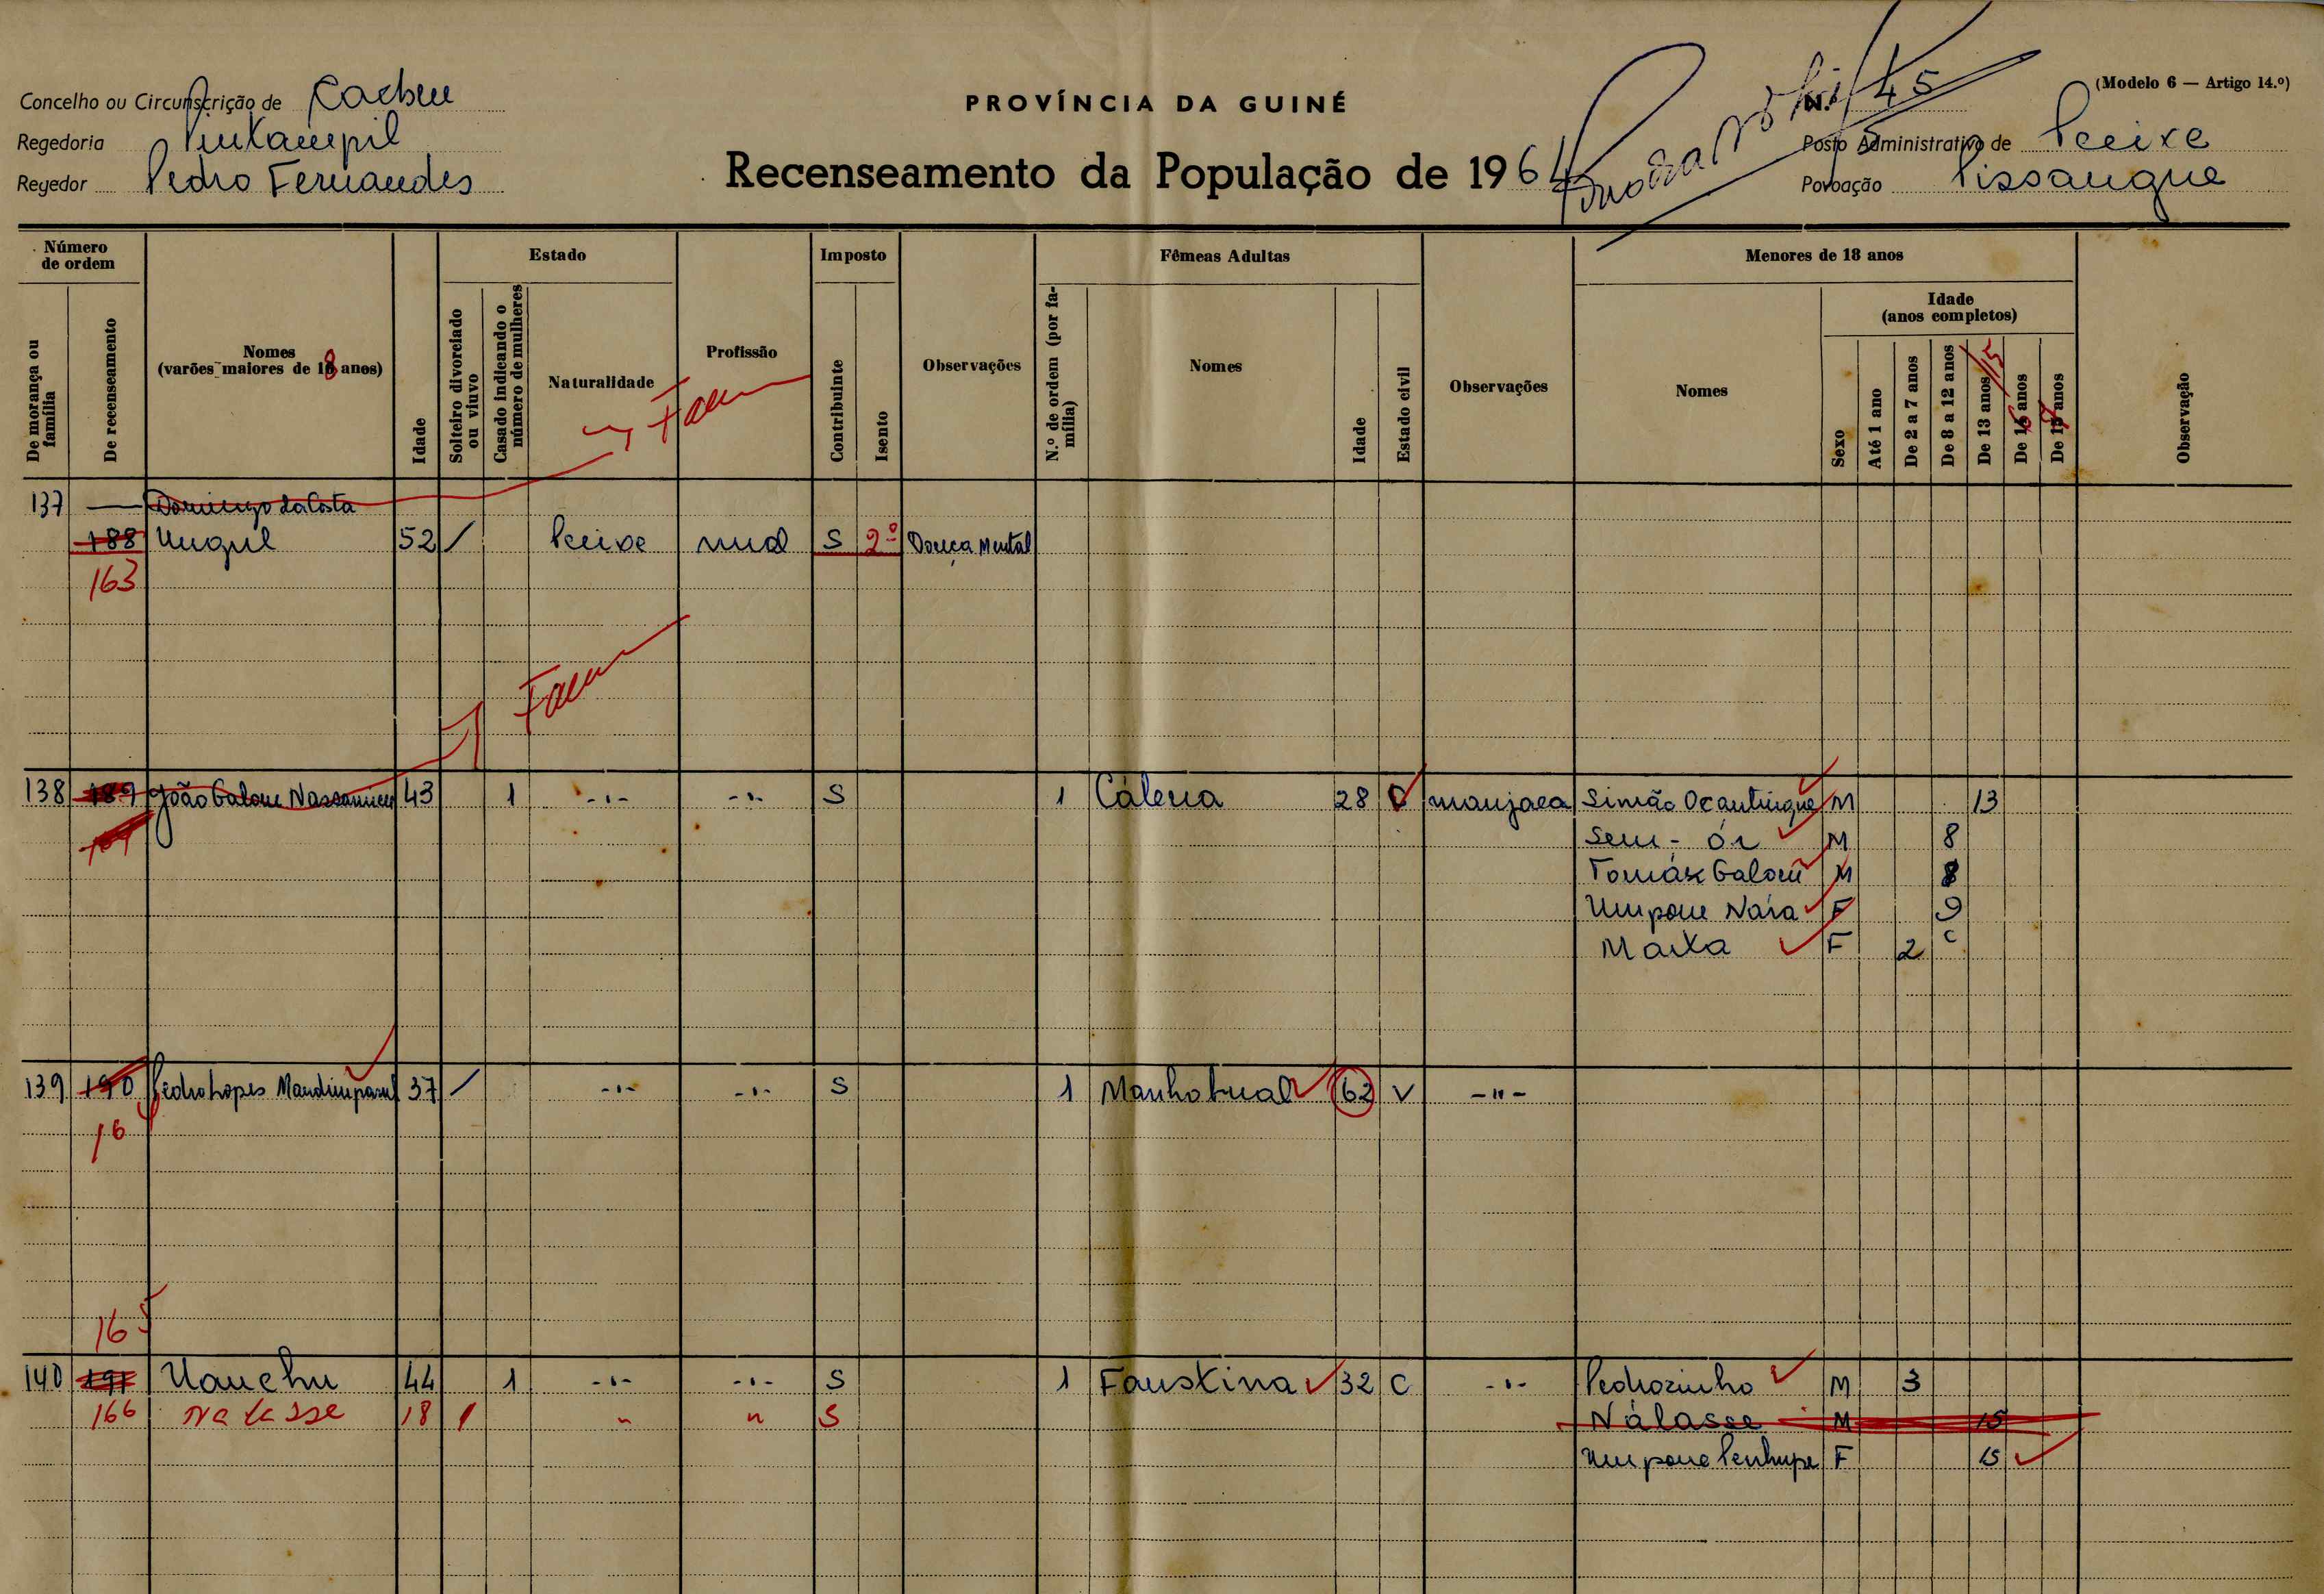 (Modelo 6 — Artigo 14.º)
Concelho ou Circunscrição de Cacheu
PROVÍNCIA DA GUINÉ
N.º 45
Regedoria
Posto Administrativo de Pecixe
Regedor Pedro Fernandes
Recenseamento da População de 1964
Povoação Pissangue
Número de ordem
Estado
Imposto
Fêmeas Adultas
Menores de 18 anos
De morança ou família
De recenseamento
Nomes (varões maiores de 18 anos)
Idade
Solteiro divorciado ou viuvo
Casado indicando o número de mulheres
Naturalidade
Profissão
Contribuinte
Isento
Observações
N.º de ordem (por família)
Nomes
Idade
Estado civil
Observações
Nomes
Sexo
Idade (anos completos)
Até 1 ano
De 2 a 7 anos
De 8 a 12 anos
De 13 anos 15
De 16 anos
De 17 anos
Observação
137 — Domingo da Costa
188 52 / Pecixe S 2º Doença Mental
163
138 189 João 43 1 -"- -"- S 1 Cálena 28 C manjaca Simão M 13
Sem-ór M 8
Tomás M 8
Umpone Naia F 9
Marta F 2
139 190 Pedro Lopes 37 / -"- -"- S 1 62 V -"-
16
165
140 191 Uanchu 44 1 -"- -"- S 1 Faustina 32 C -"- Pedrozinho M 3
166 Nalasse 18 / " " S Nálasse M 15
Umpone Penhupe F 15